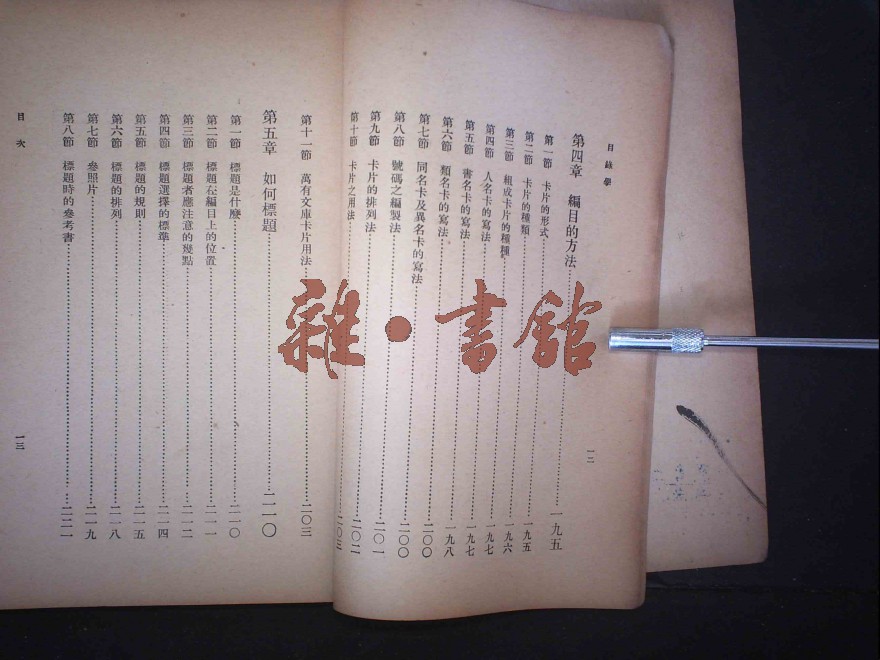 目錄學
第四章 編目的方法 一九五
第一節 卡片的形式 一九五
第二節 卡片的種類 一九五
第三節 組成卡片的種種 一九六
第四節 人名卡的寫法 一九七
第五節 書名卡的寫法 一九七
第六節 類名卡的寫法 一九八
第七節 同名卡及異名卡的寫法 二〇〇
第八節 號碼之編製法 二〇〇
第九節 卡片的排列法 二〇一
第十節 卡片之用法 二〇二
一二
第十一節 萬有文庫卡片用法 二〇三
第五章 如何標題 二一〇
第一節 標題是什麼 二一〇
第二節 標題在編目上的位置 二一一
第三節 標題者應注意的幾點 二一二
第四節 標題選擇的標準 二一四
第五節 標題的規則 二一五
第六節 標題的排列 二一八
第七節 參照片 二一九
第八節 標題時的參考書 二二一
目次
一三
雜·書館